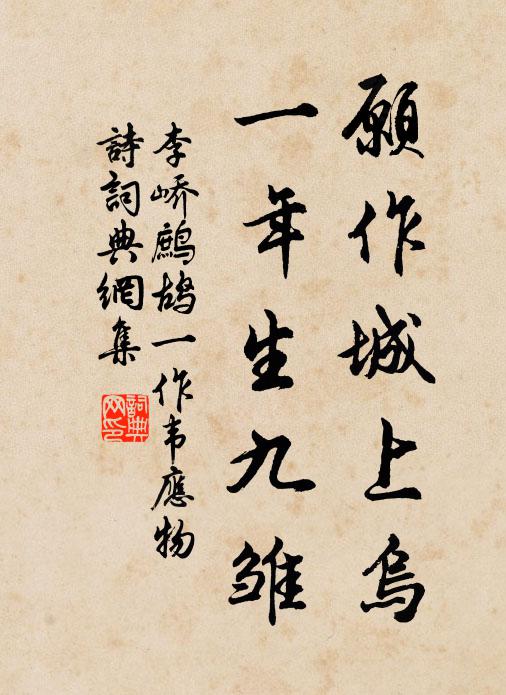 願作城上烏
一年生九雏
李嶠鷓鴣一作韦應物
詩詞典網集
詞典网印